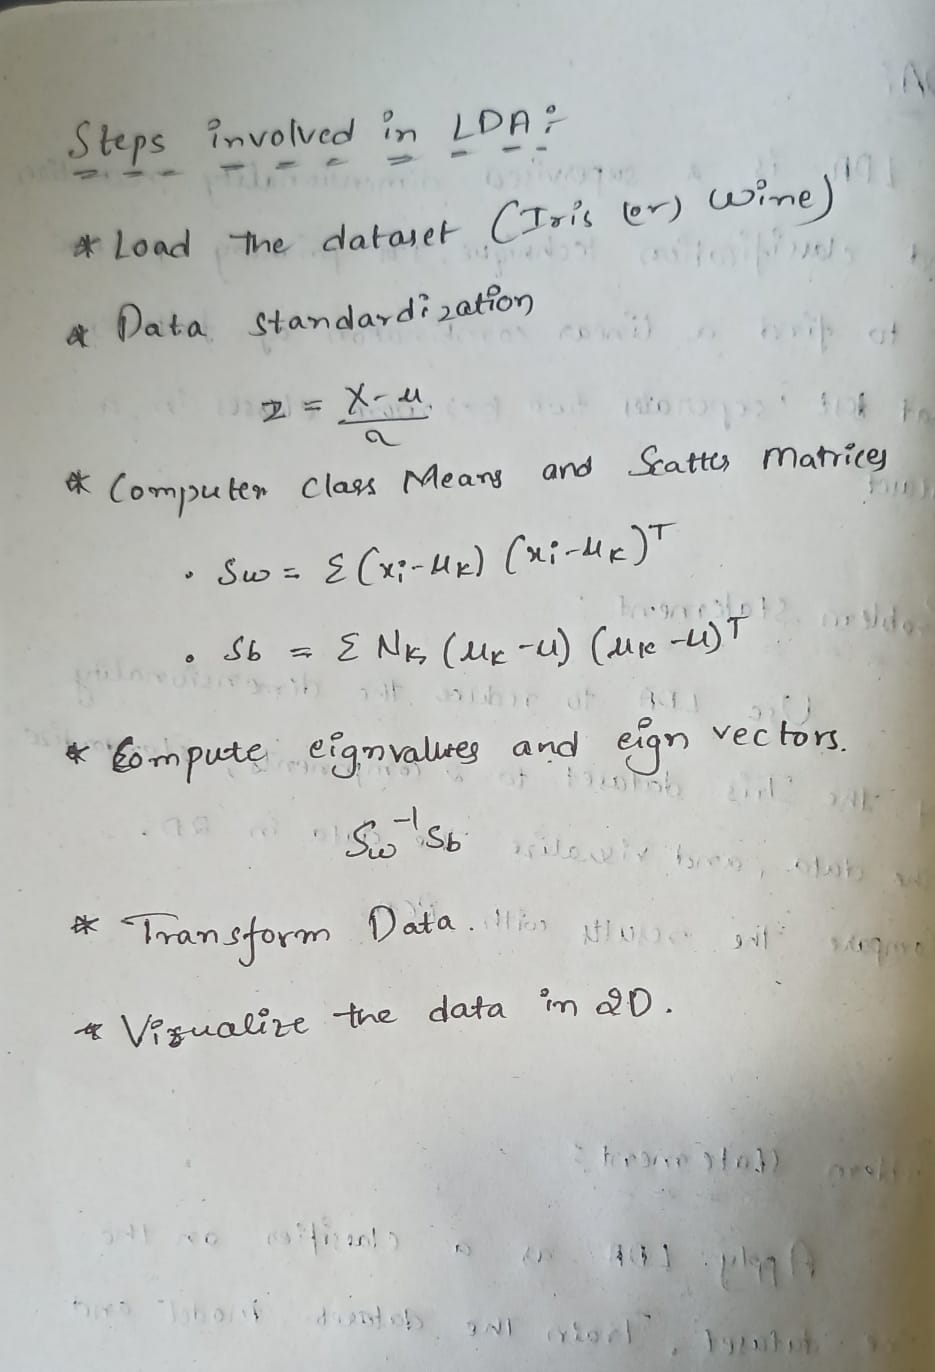 Steps involved in LDA:-
* Load the dataset (Iris (or) wine)
* Data standardization
z = X-μ / a
* Computer class Means and Scatter Matrices
• Sw = Σ(xi-μk) (xi-μk)^T
• Sb = Σ Nk (μk-μ) (μk-μ)^T
* Compute eignvalues and eign vectors.
Sw^-1 Sb
* Transform Data.
* Visualize the data in 2D.